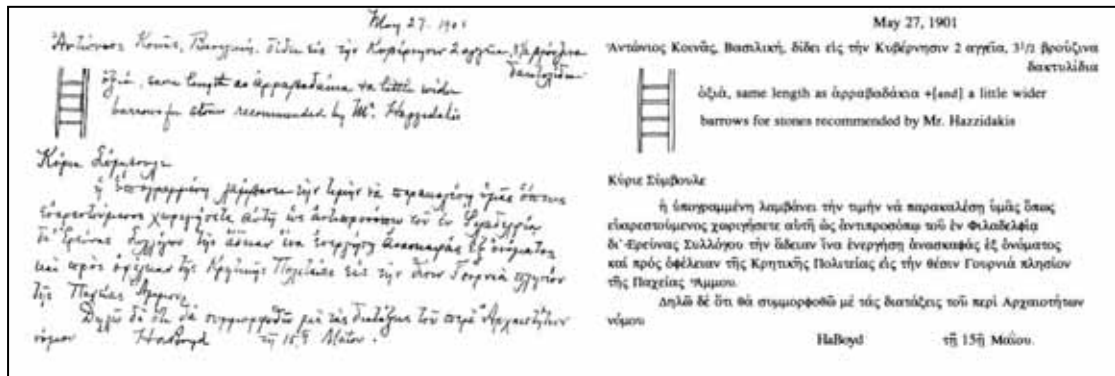 May 27. 1901
Ἀντώνιος Κοινᾶς, Βασιλική, δίδει εἰς τὴν Κυβέρνησιν 2 αγγεῖα, 3 1/2 βρούζινα
δακτυλίδια
ὀξιά, same length as ἀρραβαδάκια + a little wider
barrows for stones recommended by Mr. Hazzidakis
Κύριε Σύμβουλε
ἡ ὑπογραμμένη λαμβάνει τὴν τιμὴν νὰ παρακαλέσῃ ὑμᾶς ὅπως
εὐαρεστούμενος χωριγήσετε αὐτῇ ὡς ἀντιπροσόπῳ τοῦ ἐν Φιλαδελφίᾳ
δι' Ἐρεύνας Συλλόγου τὴν ἄδειαν ἵνα ἐνεργήσῃ ἀνασκαφάς ἐξ ὀνόματος
καὶ πρὸς ὀφέλειαν τῆς Κρητικῆς Πολιτείας εἰς τὴν θέσιν Γουρνιὰ πλησίον
τῆς Παχείας Ἄμμου.
Δηλῶ δὲ ὅτι θὰ συμμορφοθῶ μὲ τὰς διατάξεις τοῦ περὶ Ἀρχαιοτήτων
νόμου HaBoyd τῇ 15ῃ Μαΐου.
May 27, 1901
Ἀντώνιος Κοινᾶς, Βασιλική, δίδει εἰς τὴν Κυβέρνησιν 2 αγγεῖα, 3 1/2 βρούζινα
δακτυλίδια
ὀξιά, same length as ἀρραβαδάκια +[and] a little wider
barrows for stones recommended by Mr. Hazzidakis
Κύριε Σύμβουλε
ἡ ὑπογραμμένη λαμβάνει τήν τιμήν νά παρακαλέσῃ ὑμᾶς ὅπως
εὐαρεστούμενος χωριγήσετε αὐτῇ ὡς ἀντιπροσόπῳ τοῦ ἐν Φιλαδελφίᾳ
δι' Ἐρεύνας Συλλόγου τήν ἄδειαν ἵνα ἐνεργήσῃ ἀνασκαφάς ἐξ ὀνόματος
καί πρός ὀφέλειαν τῆς Κρητικῆς Πολιτείας εἰς τήν θέσιν Γουρνιά πλησίον
τῆς Παχείας Ἄμμου.
Δηλῶ δέ ὅτι θά συμμορφοθῶ μέ τάς διατάξεις τοῦ περί Αρχαιοτήτων
νόμου
HaBoyd τῇ 15ῃ Μαΐου.